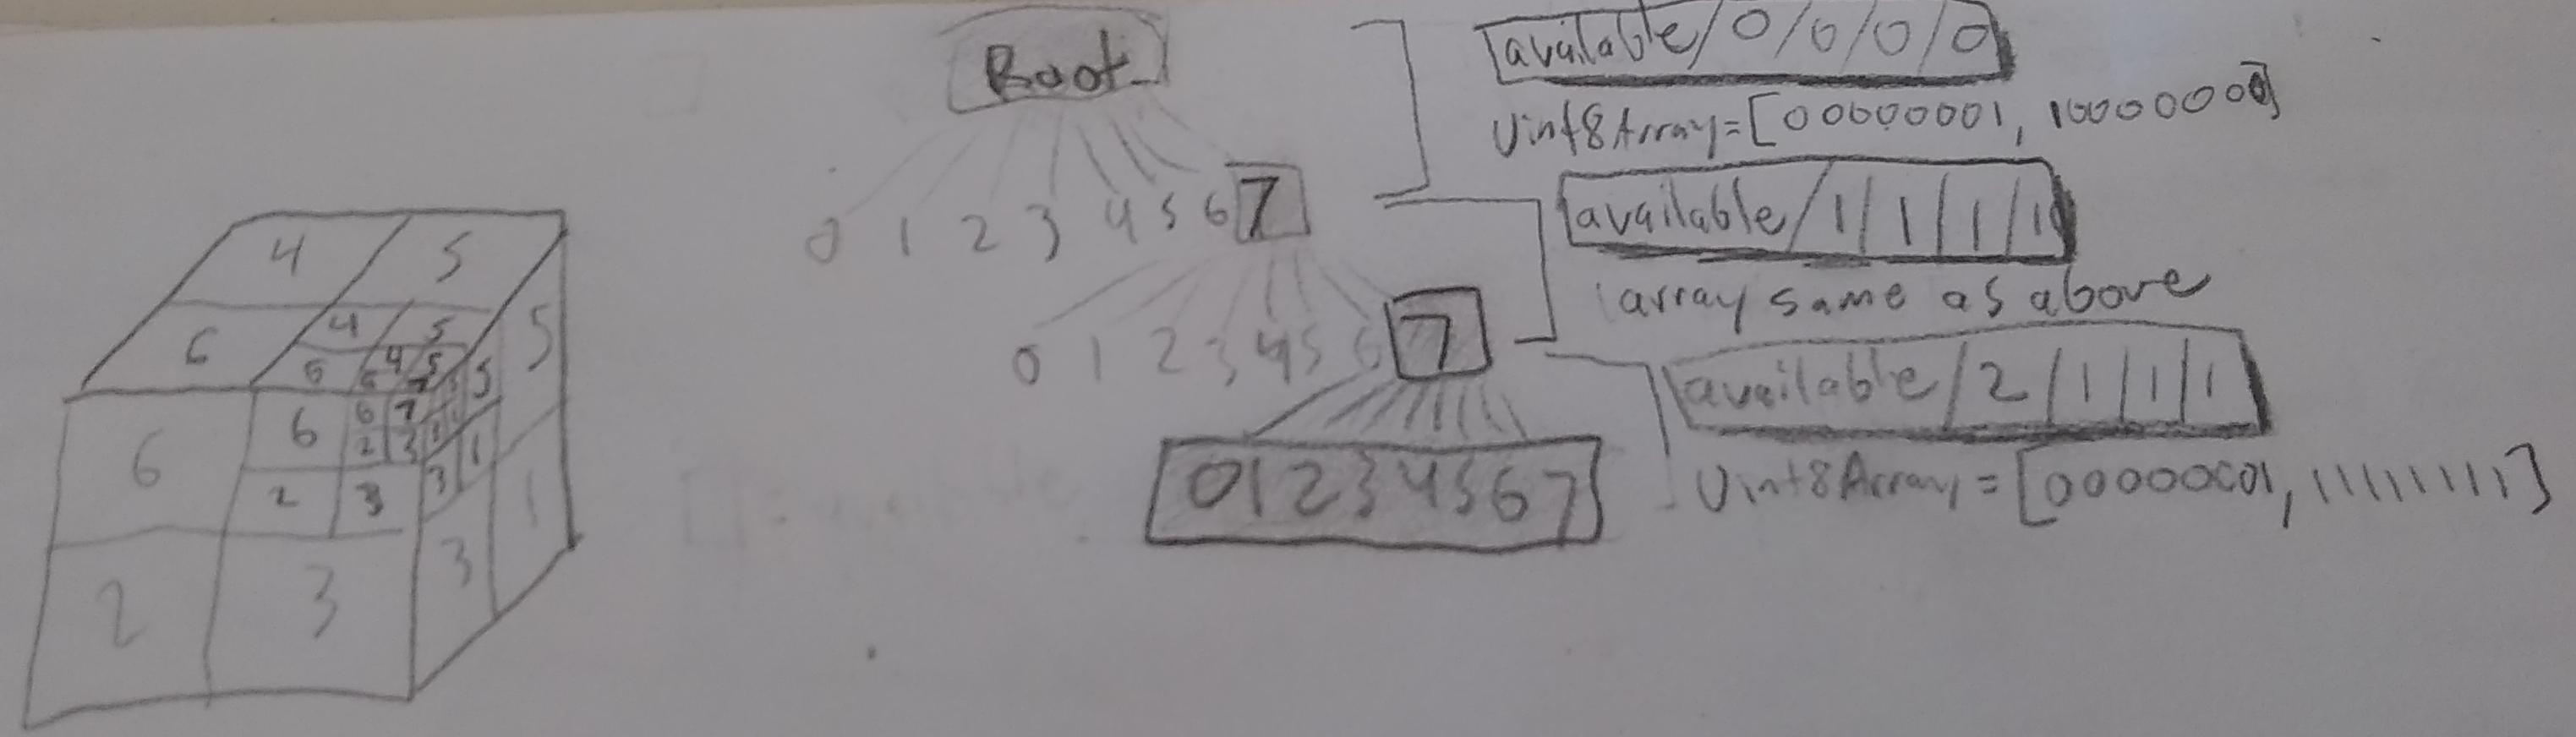 4 5
6 4 5
6 4 5
6 7
5 5
6 6 6 7
2 3
2 3 3 1
2 3 3 1
Root
0 1 2 3 4 5 6 7
0 1 2 3 4 5 6 7
0 1 2 3 4 5 6 7
available/0/0/0/0
Uint8Array=[00000001, 10000000]
available/1/1/1/1
array same as above
available/2/1/1/1
Uint8Array=[00000001, 11111111]